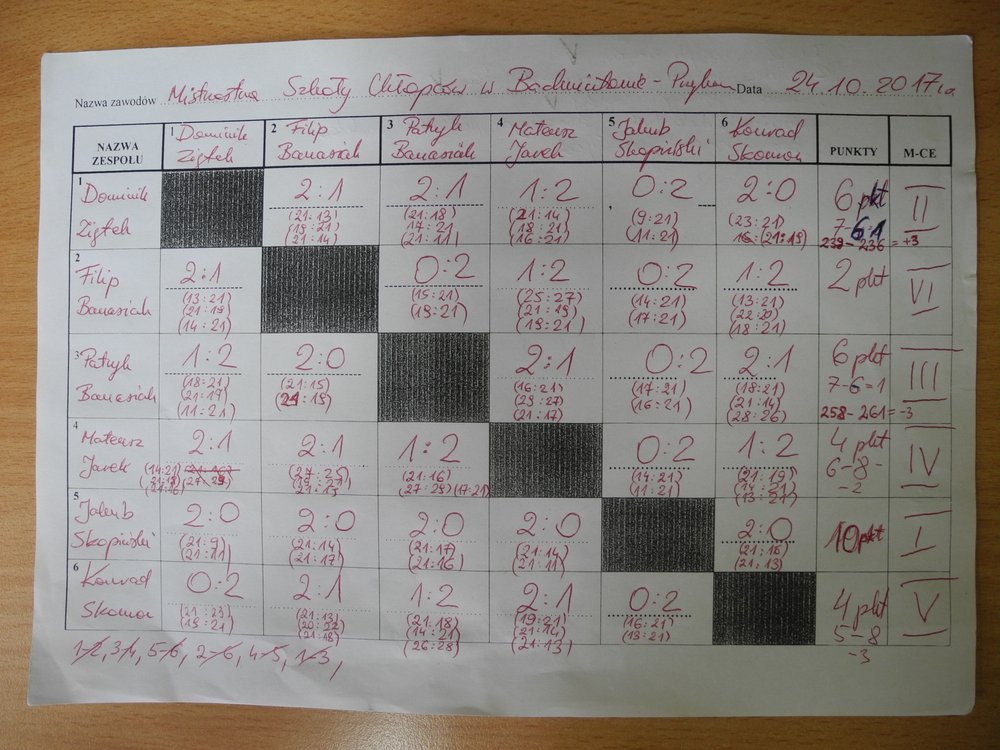 Nazwa zawodów Mistrzostwa Szkoły Chłopców w Badmintonie - Data 24.10.2017r.
NAZWA ZESPOŁU 1 Dominik Ziętek 2 Filip Banasiak 3 Patryk Banasiak 4 Mateusz Jarek 5 Jakub Skopiński 6 Konrad Skomoń PUNKTY M-CE
1 Dominik 2:1 2:1 1:2 0:2 2:0 6 pkt II
Ziętek (21:13) (21:18) (21:14) (9:21) (23:21) 7-6 1
(19:21) 17:21) (18:21) (11:21) 16:21:19)
(21:14) (21:11) (16:21) 239-236=+3
2 Filip 2:1 0:2 1:2 0:2 1:2 2 pkt VI
Banasiak (13:21) (15:21) (25:27) (14:21) (13:21)
(21:19) (19:21) (21:19) (17:21) (22:20)
(14:21) (19:21) (18:21)
3 Patryk 1:2 2:0 2:1 0:2 2:1 6 pkt III
Banasiak (18:21) (21:15) (16:21) (17:21) (18:21) 7-6=1
(21:19) (21:19) (29:27) (16:21) (21:14)
(11:21) (21:17) (28:26) 258-261=-3
4 Mateusz 2:1 2:1 1:2 0:2 1:2 4 pkt IV
Jarek (14:21) (27:25) (21:16) (14:21) (21:19) 6-8-
(21:18) (19:21) 27:29) (17:21) (11:21) (14:21) -2
(21:16) (21:19) (13:21)
5 Jakub 2:0 2:0 2:0 2:0 2:0 10 pkt I
Skopiński (21:9) (21:14) (21:17) (21:14) (21:16)
(21:11) (21:17) (21:16) (21:11) (21:13)
6 Konrad 0:2 2:1 1:2 2:1 0:2 4 pkt V
Skomoń (21:23) (21:13) (21:18) (19:21) (16:21) 5-8
(19:21) (20:22) (14:21) (21:14) (13:21) -3
(21:18) (26:28) (21:13)
1-2, 3-4, 5-6, 2-6, 4-5, 1-3,